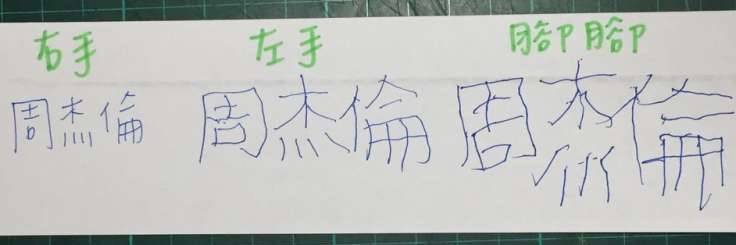 右手 左手 腳腳
周杰倫 周杰倫 周杰倫